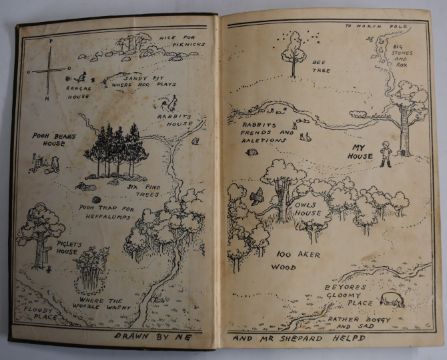 NICE FOR
PIKNICKS
KANGAS
HOUSE
SANDY PIT
WHERE ROO PLAYS
RABBITS
HOUSE
POOH BEARS
HOUSE
SIX PINE
TREES
POOH TRAP FOR
HEFFALUMPS
PIGLETS
HOUSE
WHERE THE
WOOZLE WASNT
FLOODY
PLACE
DRAWN BY ME
TO NORTH POLE
BEE
TREE
BIG
STONES
AND
ROX
RABBITS
FRENDS AND
RALETIONS
MY
HOUSE
OWLS
HOUSE
100 AKER
WOOD
EEYORES
GLOOMY
PLACE
RATHER BOGGY
AND SAD
AND MR SHEPARD HELPD